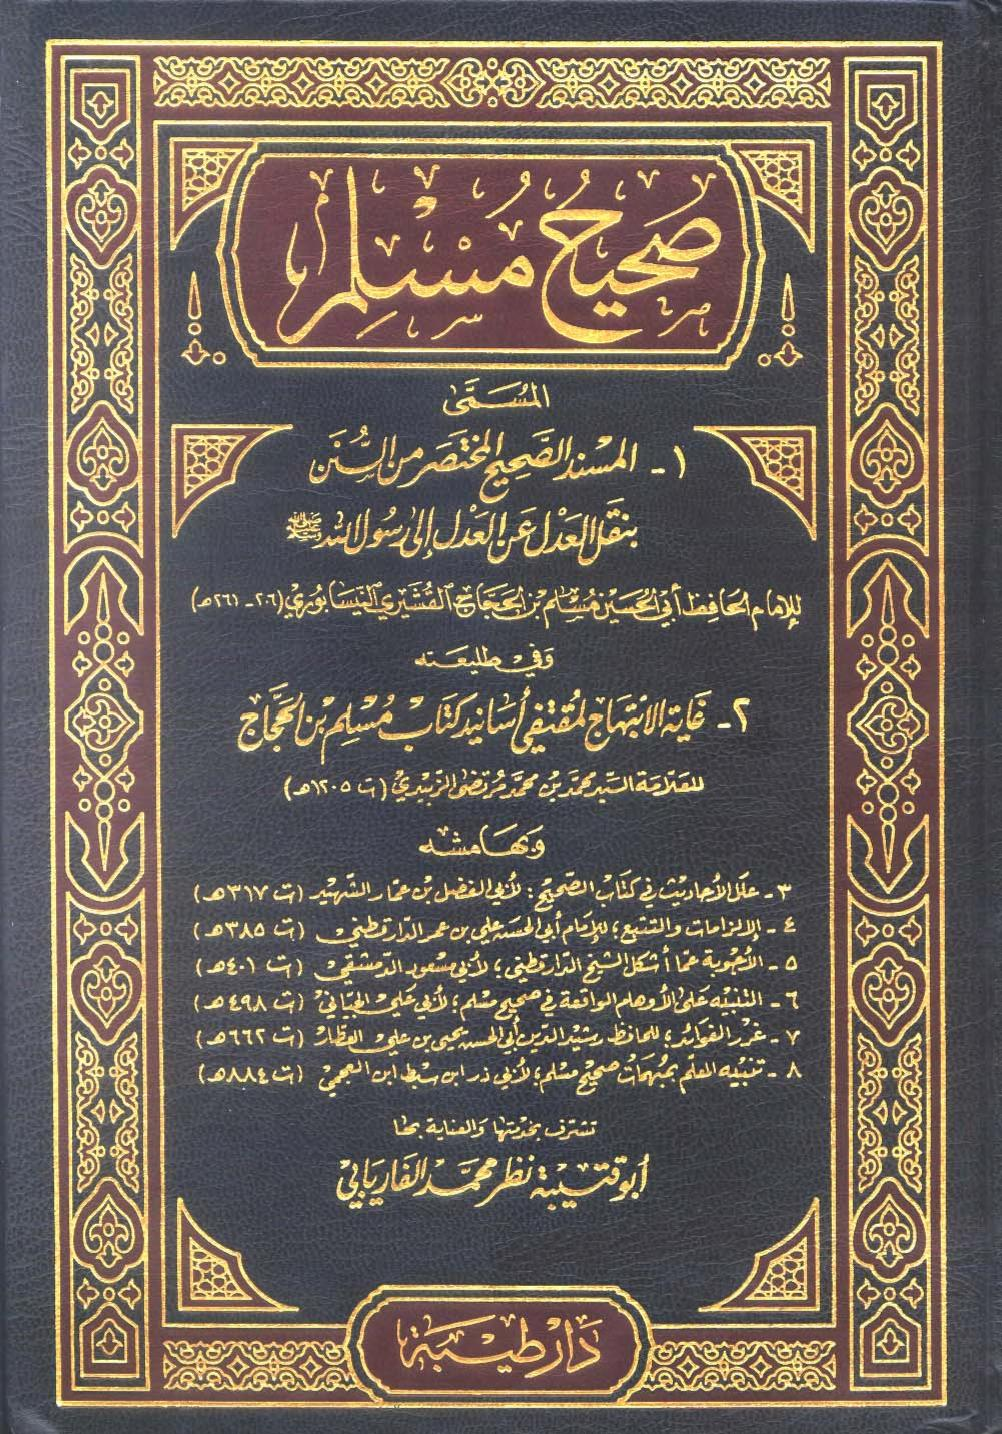 صَحِيحُ مُسْلِم
المُسَمَّى
١ - المسند الصَّحِيح المختَصَر من السُّنَن
بنقل العَدْل عَن العَدْل إلى رسُول الله ﷺ
للإمام الحافظ أبي الحسين مُسْلم بن الحجاج القُشَيري النيسابوري (٢٠٦ - ٢٦١هـ)
وفي طليعته
٢ - غاية الابتهاج لمقتفي أسانيد كتاب مُسْلِم بن الحجَّاج
للعلّامة السَّيد محمّد بن محمّد مرتضى الزَّبيدي (ت ١٢٠٥هـ)
وبهامشه
٣ - علل الأحاديث في كتاب الصّحيح: لأبي الفضل بن عمّار الشّهيد (ت ٣١٧هـ)
٤ - الإلزامات والتتبع؛ للإمام أبي الحسن علي بن عمر الدّارقطني (ت ٣٨٥هـ)
٥ - الأجوبة عمّا أشكل الشيخ الدّارقطني؛ لأبي مسعود الدمشقي (ت ٤٠١هـ)
٦ - التنبيه على الأوهام الواقعة في صحيح مسلم؛ لأبي علي الجيّاني (ت ٤٩٨هـ)
٧ - غرر الفوائد؛ للحافظ رشيد الدين أبي الحسن يحيى بن علي العطّار (ت ٦٦٢هـ)
٨ - تنبيه المعلّم بمبهمات صحيح مسلم؛ لأبي ذر ابن سبط ابن العجمي (ت ٨٨٤هـ)
تشرّف بخدمتها والعناية بها
أبو قتيبة نظر محمّد الفاريابي
دار طيبة